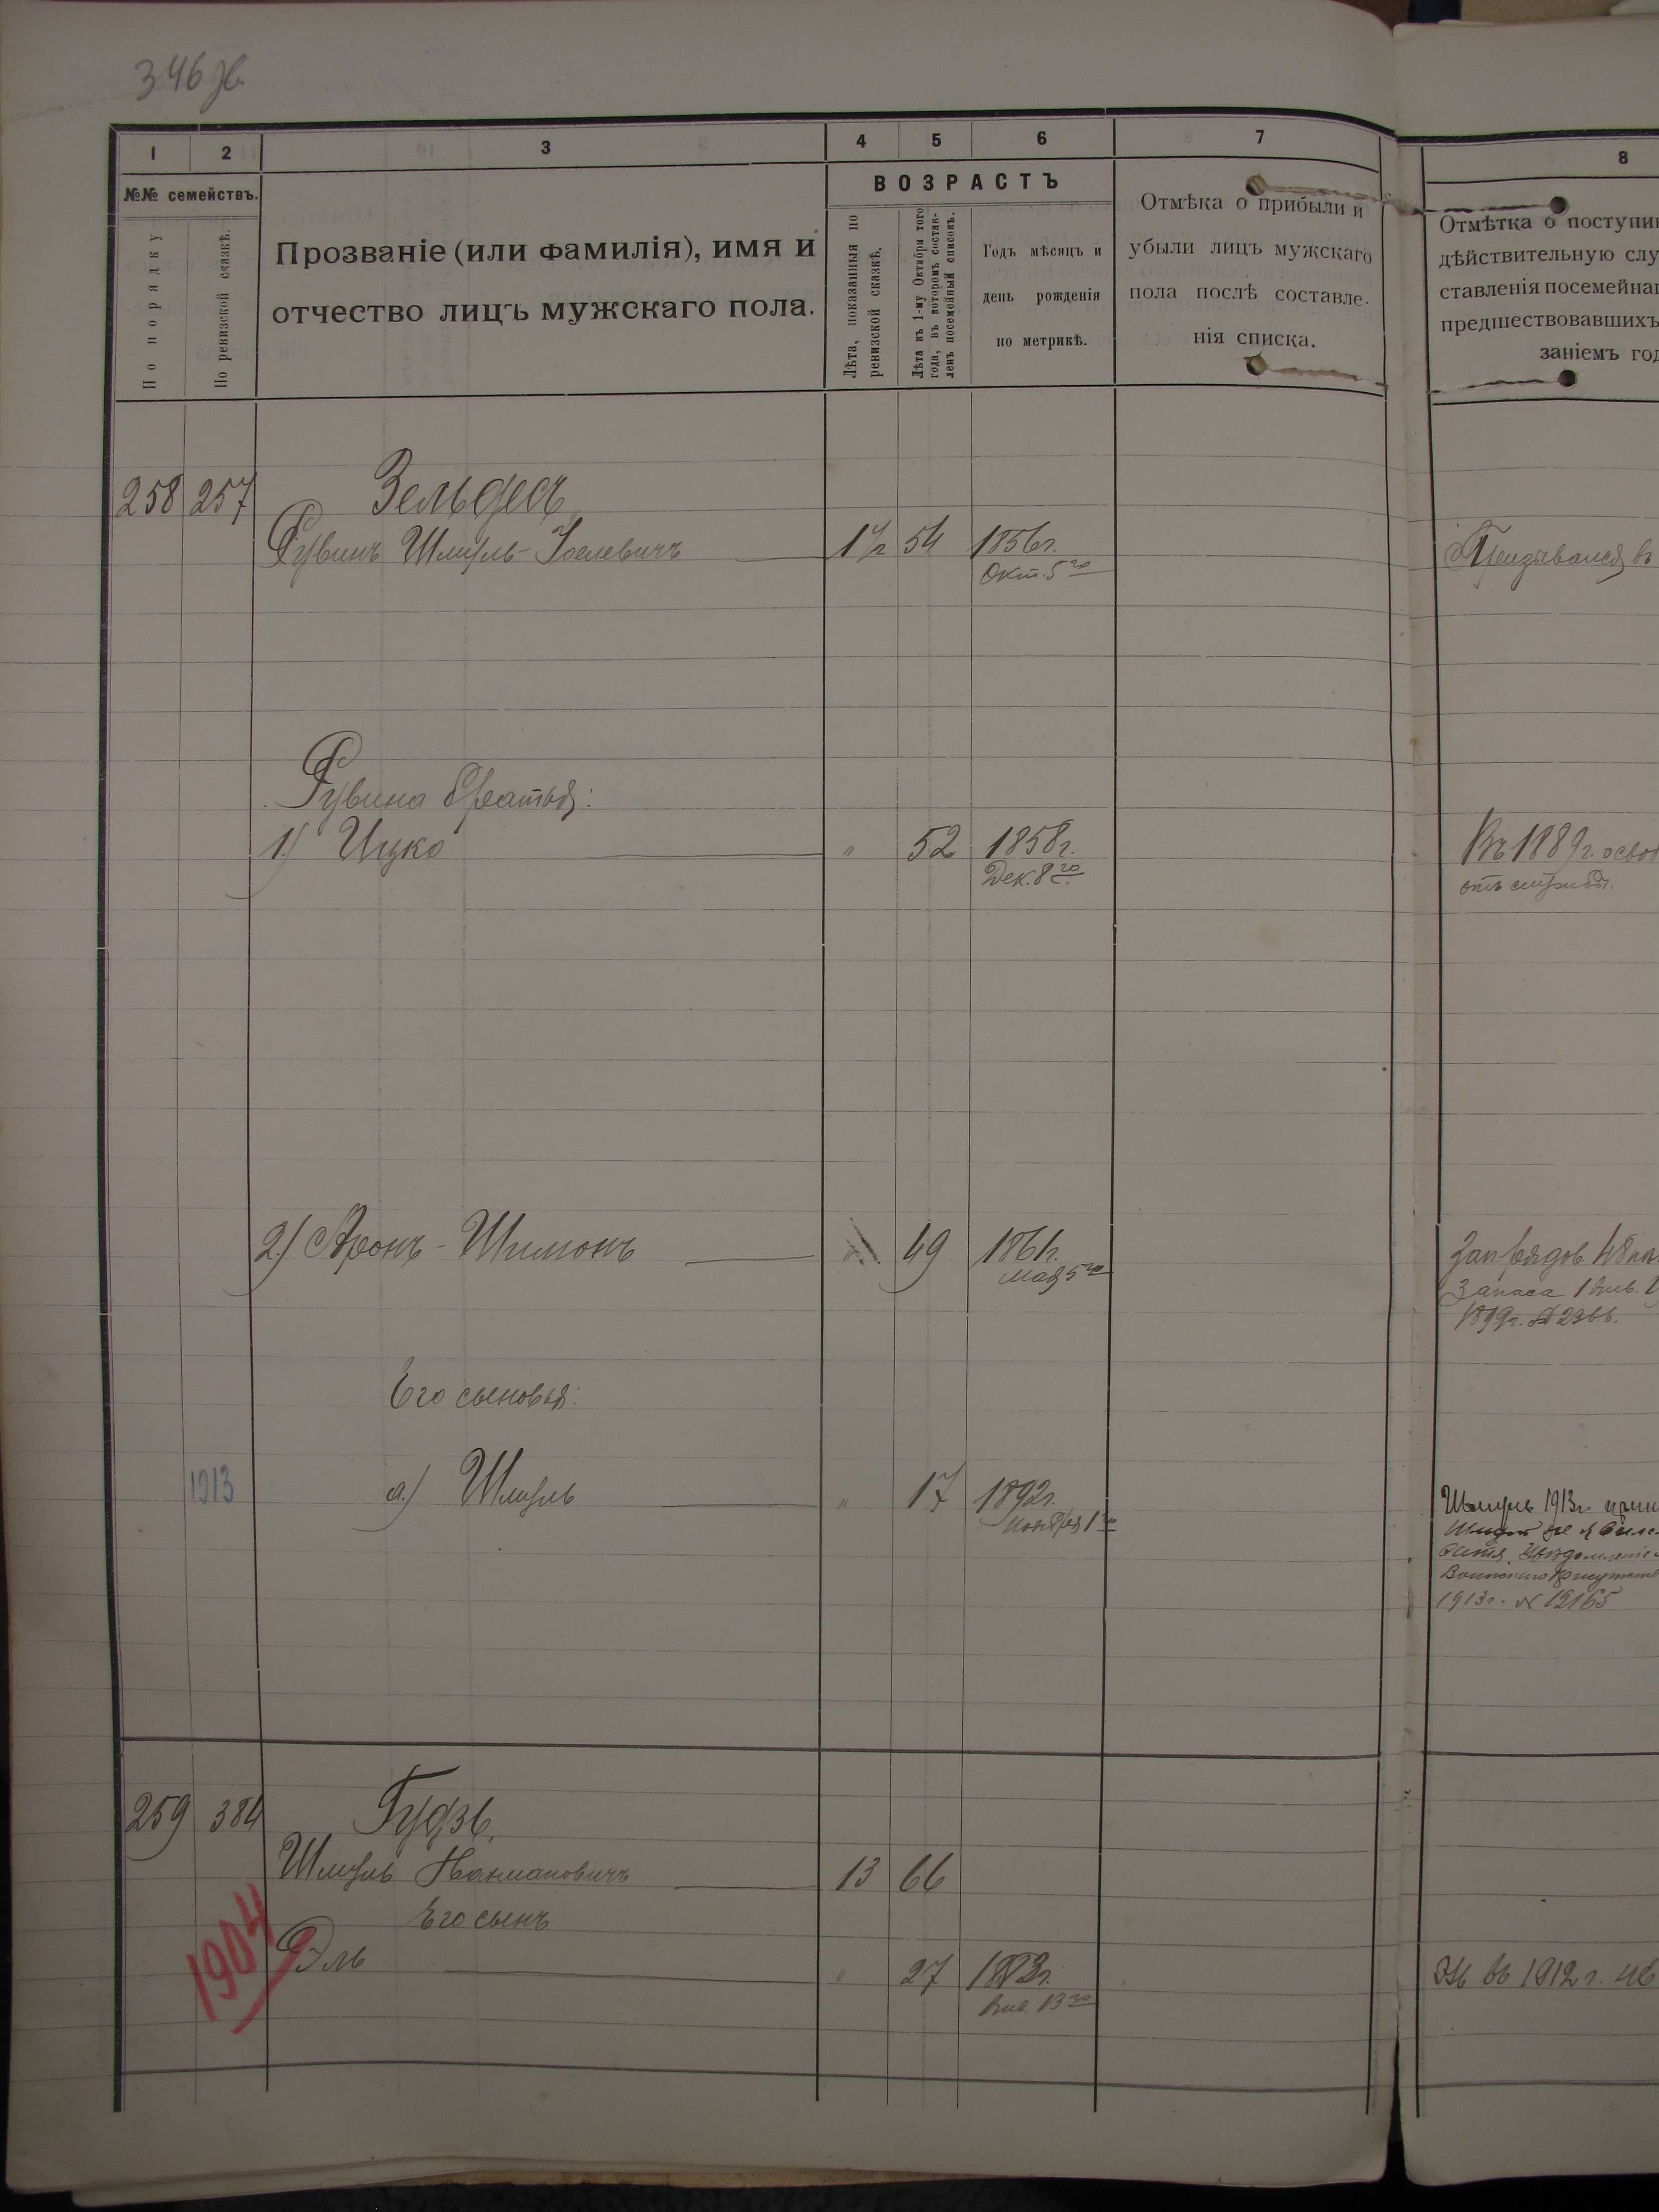 346 об.
1 2 3 4 5 6 7 8
№№ семействъ.
По порядку
По ревизской сказкѣ.
Прозваніе (или фамилія), имя и
отчество лицъ мужскаго пола.
ВОЗРАСТЪ
Лѣта, показанныя по
ревизской сказкѣ.
Лѣта къ 1-му Октября того
года, въ которомъ состав-
ленъ посемейный списокъ.
Годъ мѣсяцъ и
день рожденія
по метрикѣ.
Отмѣка о прибыли и
убыли лицъ мужскаго
пола послѣ составле-
нія списка.
Отмѣтка о поступи
дѣйствительную слу
ставленія посемейна
предшествовавшихъ
заніемъ год
258 257 Зельдесъ
Рувинъ Шмуль-Іоселевичъ 1½ 54 1856г. Призывался въ
Окт. 5го
Рувина братья:
1) Ицко " 52 1858г. Въ 1889г. освоб
Дек. 8го отъ службы.
2) Аронъ-Шимонъ " 49 1861г. Зап. рядов. 48
Мая 5го Запаса
1899г. № 2366.
Его сыновья:
1913 а) Шмуль " 17 1892г. Шмуль 1913г.
Ноября 1го
1913г. № 12165
259 384 Гудзь.
Шмуль Нахмановичъ 13 66
Его сынъ
1904 Эль " 27 въ 1912 г.
Янв. 13го